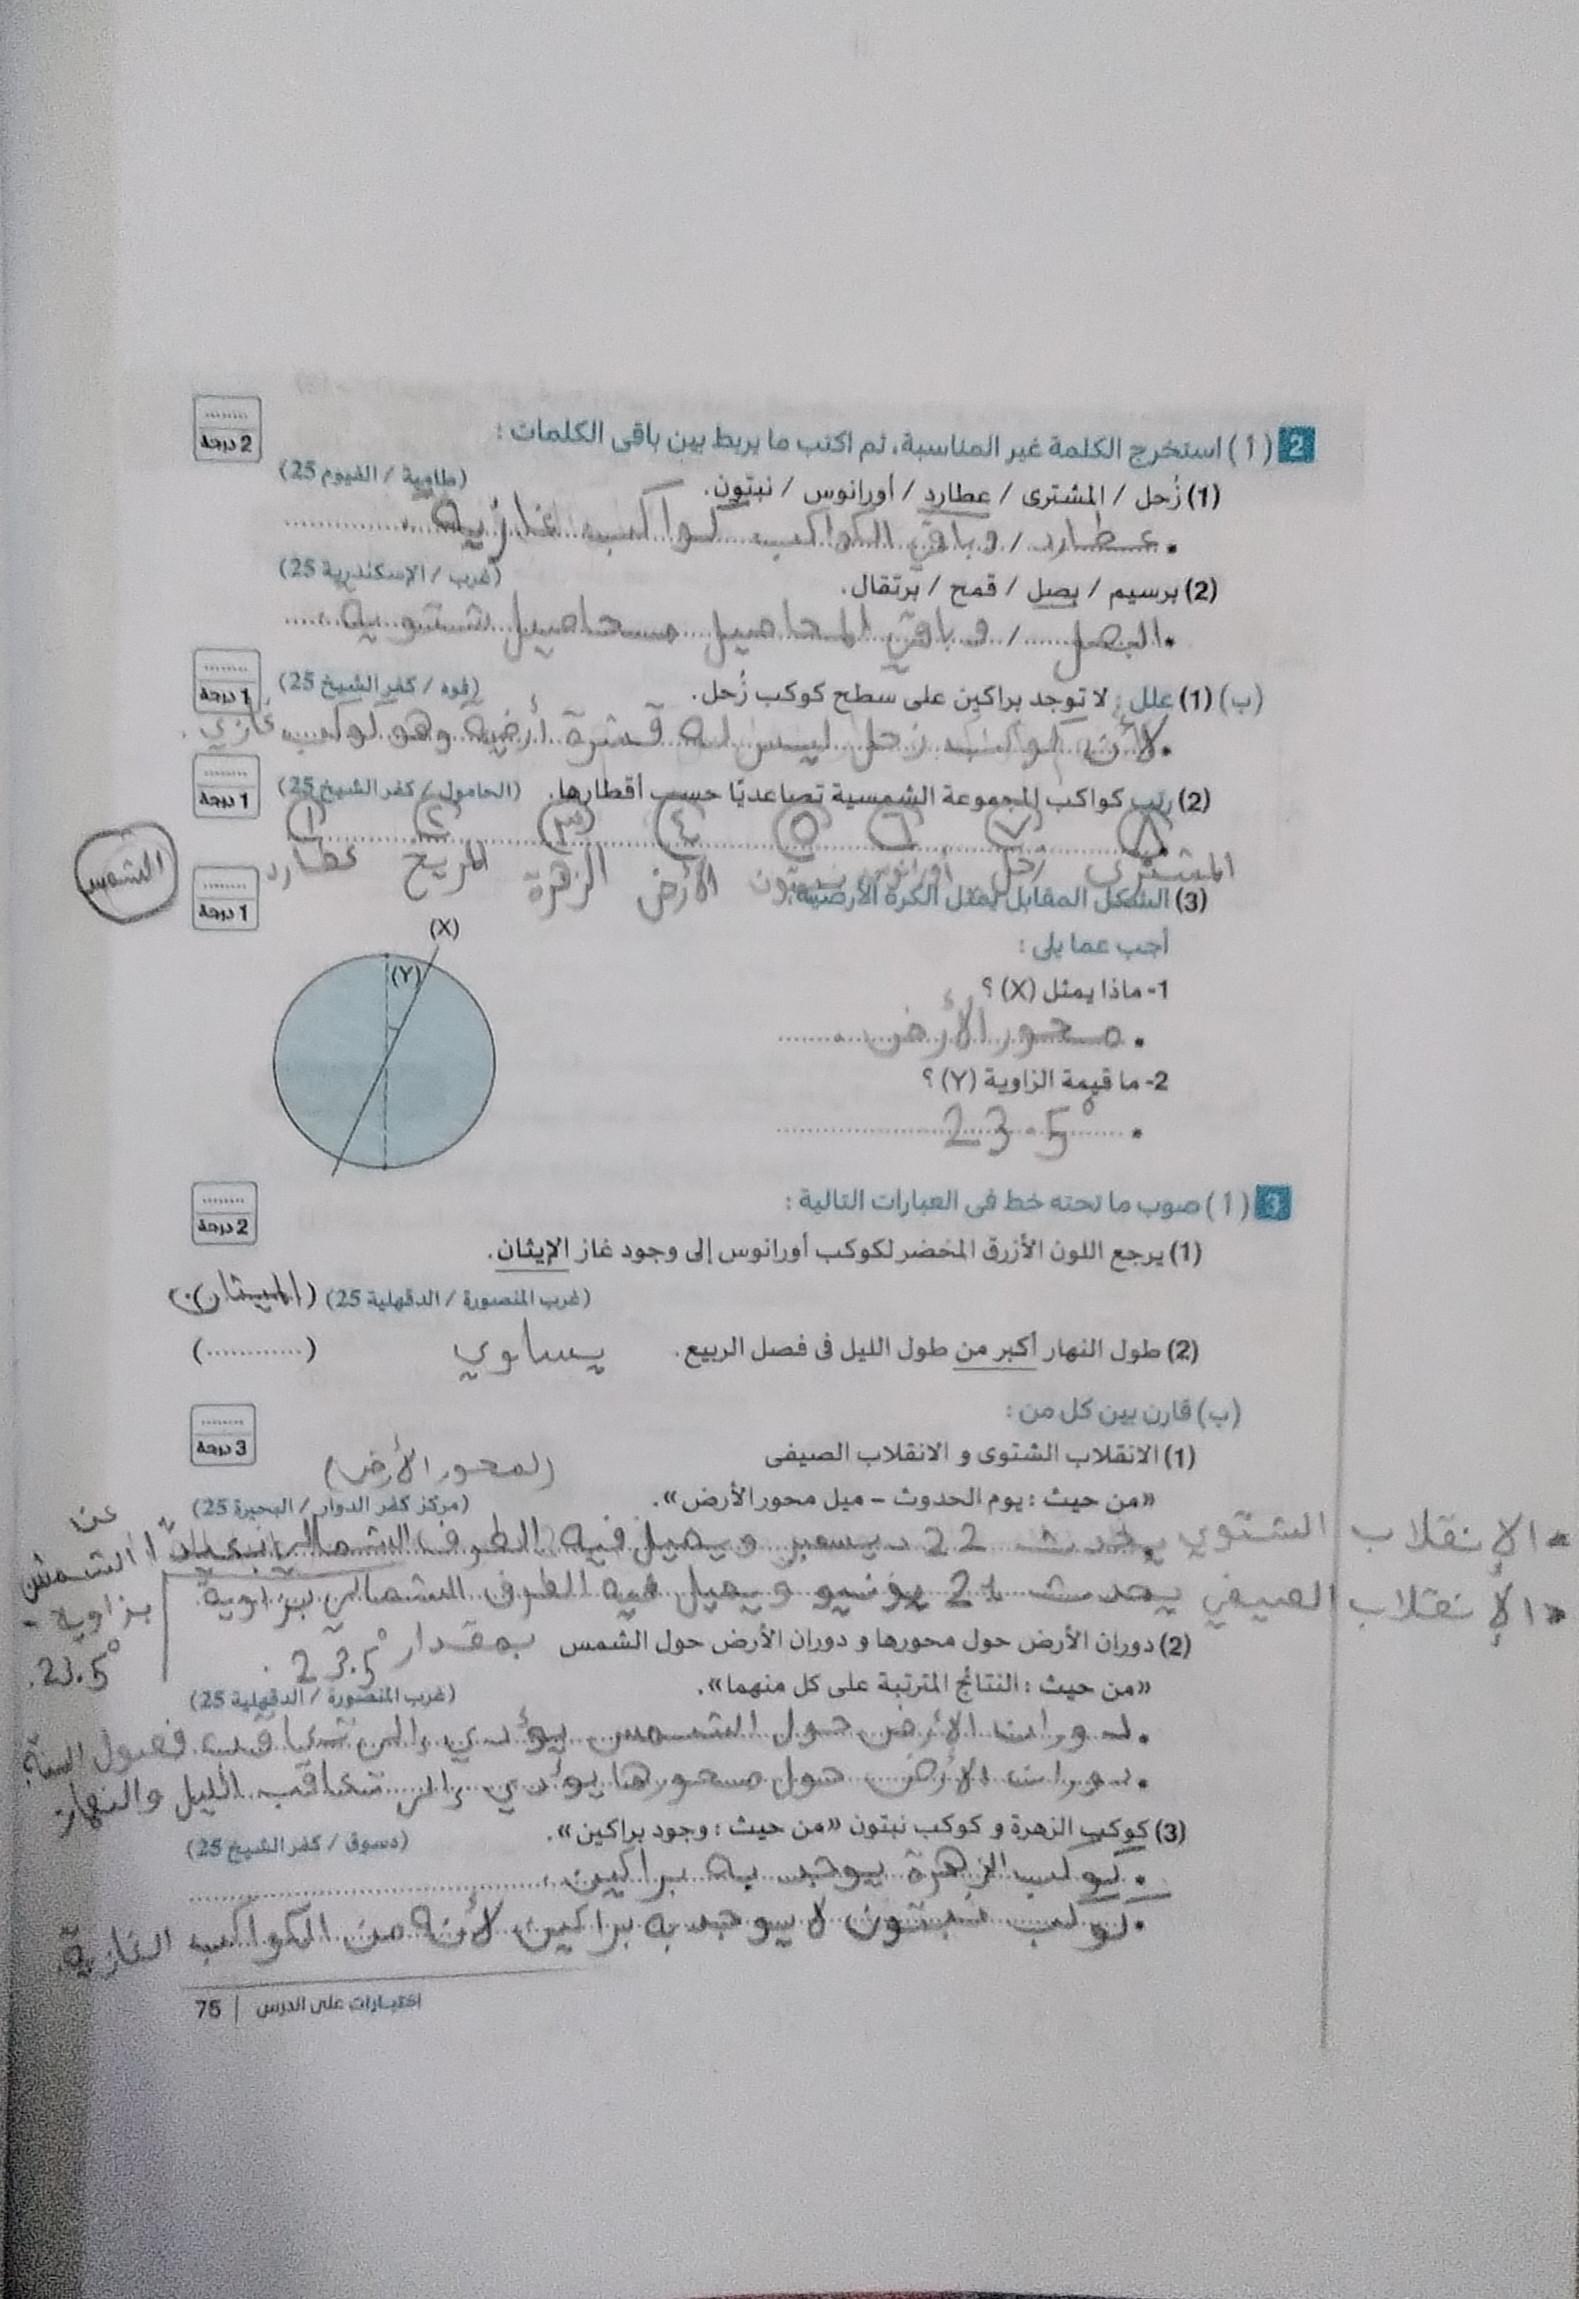 2 (أ) استخرج الكلمة غير المناسبة، ثم اكتب ما يربط بين باقى الكلمات :
2 درجة
(1) زُحل / المشترى / عطارد / أورانوس / نبتون.
(طامية / الفيوم 25)
• عطارد / وباقي الكواكب كواكب غازيه.
(2) برسيم / بصل / قمح / برتقال.
(غرب / الإسكندرية 25)
• البصل / و باقي المحاصيل محاصيل شتويه.
(ب) (1) علل : لا توجد براكين على سطح كوكب زُحل.
(فوه / كفر الشيخ 25)
1 درجة
• لأن كوكب زحل ليس له قشرة أرضيه وهو كوكب غازي.
(2) رتب كواكب المجموعة الشمسية تصاعديًا حسب أقطارها.
(الحامول / كفر الشيخ 25)
1 درجة
٨ ٧ ٦ ٥ ٤ ٣ ٢ ١
المشترى زحل أورانوس نبتون الأرض الزهرة المريخ عطارد
الشمس
(3) الشكل المقابل يمثل الكرة الأرضية.
1 درجة
أجب عما يلى :
1- ماذا يمثل (X) ؟
• محور الأرض.
2- ما قيمة الزاوية (Y) ؟
• 23.5°
(X)
(Y)
3 (أ) صوب ما تحته خط فى العبارات التالية :
2 درجة
(1) يرجع اللون الأزرق المخضر لكوكب أورانوس إلى وجود غاز الإيثان.
(غرب المنصورة / الدقهلية 25) (الميثان.)
(2) طول النهار أكبر من طول الليل فى فصل الربيع. يساوي (............)
(ب) قارن بين كل من :
3 درجة
(1) الانقلاب الشتوى و الانقلاب الصيفى
(لمحور الأرض)
«من حيث : يوم الحدوث – ميل محور الأرض».
(مركز كفر الدوار / البحيرة 25)
الإنقلاب الشتوي يحدث 22 ديسمبر ويميل فيه الطرف الشمالي بعيدًا عن الشمس بزاوية 23.5°.
الإنقلاب الصيفي يحدث 21 يونيو ويميل فيه الطرف الشمالي بزاوية بمقدار 23.5°.
(2) دوران الأرض حول محورها و دوران الأرض حول الشمس
«من حيث : النتائج المترتبة على كل منهما».
(غرب المنصورة / الدقهلية 25)
• دوران الأرض حول الشمس يؤدي إلى تعاقب فصول السنة.
• دوران الأرض حول محورها يؤدي إلى تعاقب الليل والنهار
(3) كوكب الزهرة و كوكب نبتون «من حيث : وجود براكين».
(دسوق / كفر الشيخ 25)
• كوكب الزهرة يوجد به براكين.
• كوكب نبتون لا يوجد به براكين لأنه من الكواكب الغازية.
اختبارات على الدرس | 75